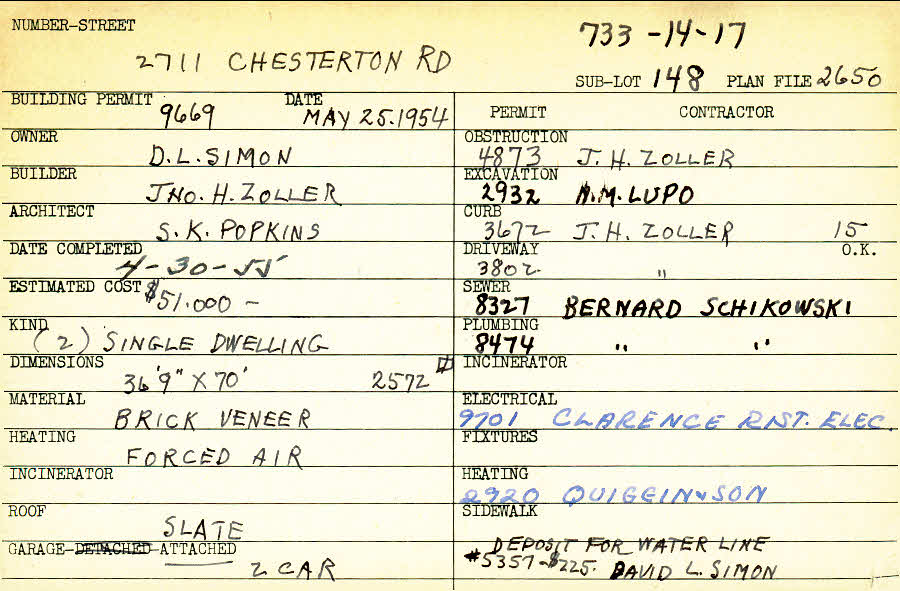 NUMBER-STREET
733-14-17
2711 CHESTERTON RD
SUB-LOT 148 PLAN FILE 2650
BUILDING PERMIT 9669 DATE MAY 25.1954
OWNER
D.L.SIMON
BUILDER
JNO. H. ZOLLER
ARCHITECT
S. K. POPKINS
DATE COMPLETED
4-30-55
ESTIMATED COST $51.000 -
KIND
(2) SINGLE DWELLING
DIMENSIONS
36'9" X 70' 2572
MATERIAL
BRICK VENEER
HEATING
FORCED AIR
INCINERATOR
ROOF
SLATE
GARAGE-DETACHED-ATTACHED
2 CAR
PERMIT CONTRACTOR
OBSTRUCTION
4873 J. H. ZOLLER
EXCAVATION
2932 N.M. LUPO
CURB
3672 J. H. ZOLLER 15
DRIVEWAY O.K.
3802 "
SEWER
8327 BERNARD SCHIKOWSKI
PLUMBING
8474 " "
INCINERATOR
ELECTRICAL
9701 CLARENCE RIST. ELEC.
FIXTURES
HEATING
2920 QUIGGIN & SON
SIDEWALK
DEPOSIT FOR WATER LINE
#5357-$225. DAVID L. SIMON